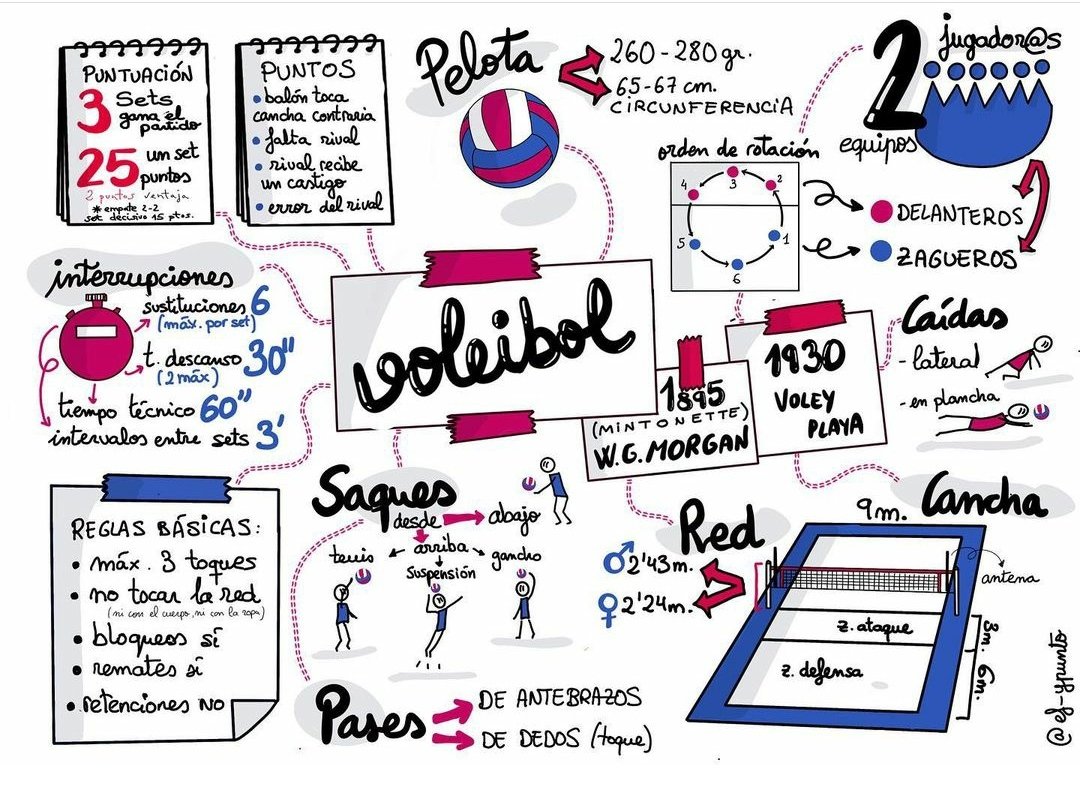 PUNTUACIÓN
3 Sets
gana el
partido
25 un set
puntos
2 puntos ventaja
* empate 2-2
set decisivo 15 ptos.
PUNTOS
• balón toca
cancha contraria
• falta rival
• rival recibe
un castigo
• error del rival
Pelota
260-280 gr.
65-67 cm.
CIRCUNFERENCIA
2 jugador@s
equipos
orden de rotación
4
3
2
5
1
6
DELANTEROS
ZAGUEROS
interrupciones
sustituciones 6
(máx. por set)
t. descanso 30"
(2 máx)
tiempo técnico 60"
intervalos entre sets 3'
voleibol
1895
(MINTONETTE)
W.G. MORGAN
1930
VOLEY
PLAYA
Caídas
- lateral
- en plancha
REGLAS BÁSICAS:
• máx. 3 toques
• no tocar la red
(ni con el cuerpo, ni con la ropa)
• bloqueos sí
• remates sí
• retenciones NO
Saques
desde
abajo
arriba
tenis
gancho
suspensión
Pases
DE ANTEBRAZOS
DE DEDOS (toque)
Red
♂ 2'43 m.
♀ 2'24 m.
Cancha
9 m.
antena
z. ataque
3 m.
z. defensa
6 m.
@ef-ypunto